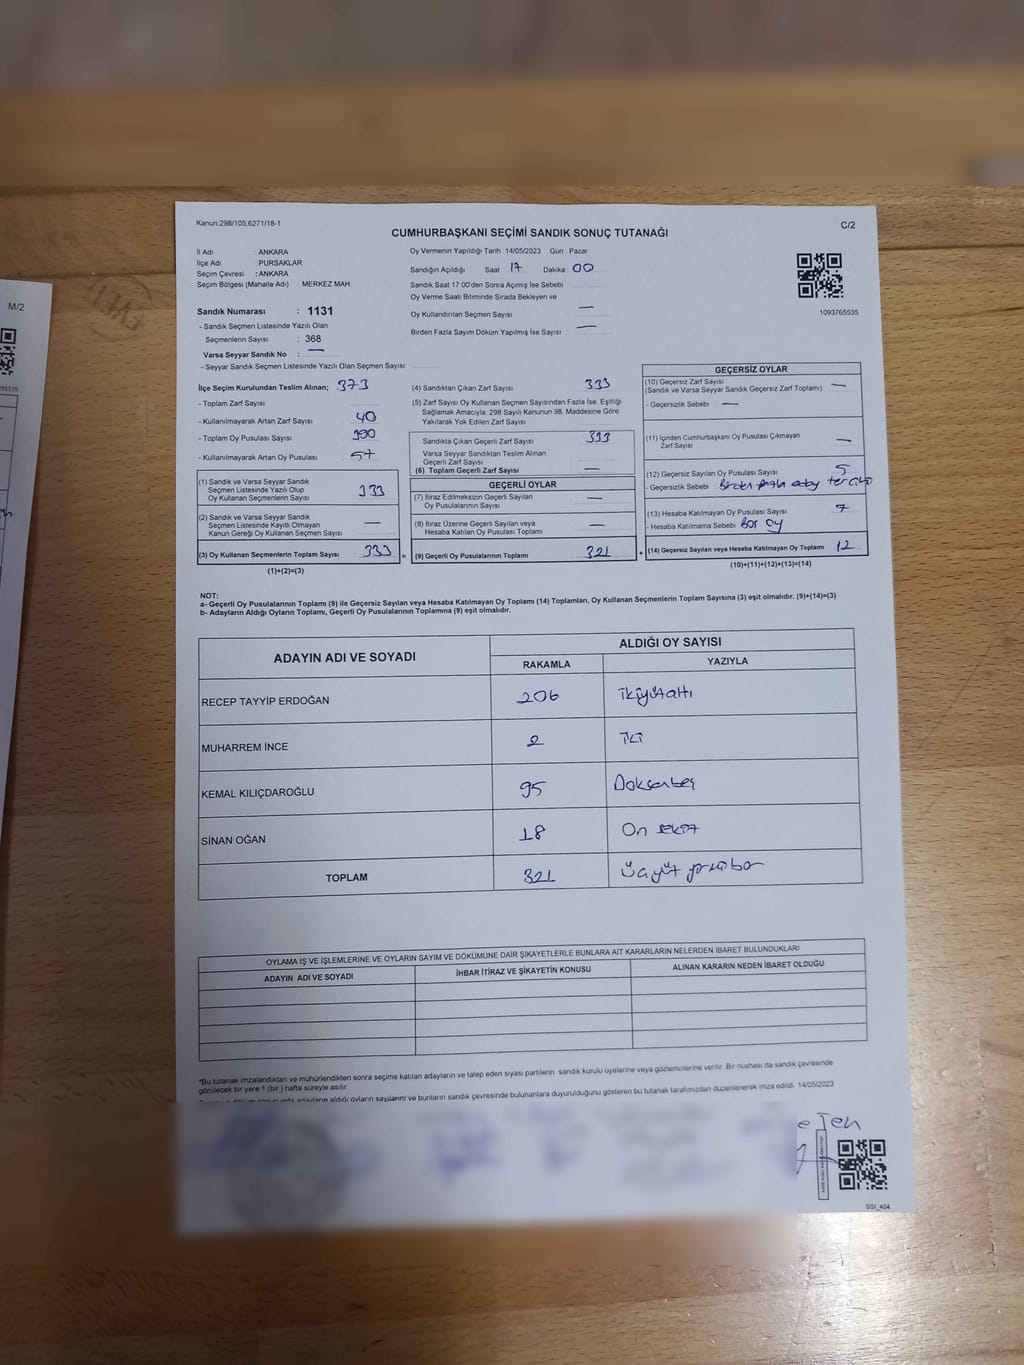 M/2
Kanun:298/105,6271/18-1
C/2
CUMHURBAŞKANI SEÇİMİ SANDIK SONUÇ TUTANAĞI
İl Adı : ANKARA
İlçe Adı : PURSAKLAR
Seçim Çevresi : ANKARA
Seçim Bölgesi (Mahalle Adı) : MERKEZ MAH.
Sandık Numarası : 1131
- Sandık Seçmen Listesinde Yazılı Olan
Seçmenlerin Sayısı : 368
Varsa Seyyar Sandık No : —
- Seyyar Sandık Seçmen Listesinde Yazılı Olan Seçmen Sayısı
Oy Vermenin Yapıldığı Tarih :14/05/2023 Gün : Pazar
Sandığın Açıldığı Saat 17 Dakika 00
Sandık Saat 17:00'den Sonra Açımış İse Sebebi
Oy Verme Saati Bitiminde Sırada Bekleyen ve
Oy Kullandırılan Seçmen Sayısı —
Birden Fazla Sayım Döküm Yapılmış İse Sayısı —
1093765535
İlçe Seçim Kurulundan Teslim Alınan; 373
- Toplam Zarf Sayısı
- Kullanılmayarak Artan Zarf Sayısı 40
- Toplam Oy Pusulası Sayısı 390
- Kullanılmayarak Artan Oy Pusulası 57
(1) Sandık ve Varsa Seyyar Sandık
Seçmen Listesinde Yazılı Olup
Oy Kullanan Seçmenlerin Sayısı 333
(2) Sandık ve Varsa Seyyar Sandık
Seçmen Listesinde Kayıtlı Olmayan
Kanun Gereği Oy Kullanan Seçmen Sayısı —
(3) Oy Kullanan Seçmenlerin Toplam Sayısı 333 =
(1)+(2)=(3)
(4) Sandıktan Çıkan Zarf Sayısı 333
(5) Zarf Sayısı Oy Kullanan Seçmen Sayısından Fazla İse, Eşitliği
Sağlamak Amacıyla, 298 Sayılı Kanunun 98. Maddesine Göre
Yakılarak Yok Edilen Zarf Sayısı
Sandıkta Çıkan Geçerli Zarf Sayısı 333
Varsa Seyyar Sandıktan Teslim Alınan
Geçerli Zarf Sayısı
(6) Toplam Geçerli Zarf Sayısı —
GEÇERLİ OYLAR
(7) İtiraz Edilmeksizin Geçerli Sayılan
Oy Pusulalarının Sayısı —
(8) İtiraz Üzerine Geçerli Sayılan veya
Hesaba Katılan Oy Pusulası Toplamı —
(9) Geçerli Oy Pusulalarının Toplamı 321 +
GEÇERSİZ OYLAR
(10) Geçersiz Zarf Sayısı
(Sandık ve Varsa Seyyar Sandık Geçersiz Zarf Toplamı) —
- Geçersizlik Sebebi —
(11) İçinden Cumhurbaşkanı Oy Pusulası Çıkmayan
Zarf Sayısı —
(12) Geçersiz Sayılan Oy Pusulası Sayısı 5
- Geçersizlik Sebebi Birden fazla aday tercih
(13) Hesaba Katılmayan Oy Pusulası Sayısı 7
- Hesaba Katılmama Sebebi Boş oy
(14) Geçersiz Sayılan veya Hesaba Katılmayan Oy Toplamı 12
(10)+(11)+(12)+(13)=(14)
NOT:
a- Geçerli Oy Pusulalarının Toplamı (9) ile Geçersiz Sayılan veya Hesaba Katılmayan Oy Toplamı (14) Toplamları, Oy Kullanan Seçmenlerin Toplam Sayısına (3) eşit olmalıdır. (9)+(14)=(3)
b- Adayların Aldığı Oyların Toplamı, Geçerli Oy Pusulalarının Toplamına (9) eşit olmalıdır.
ADAYIN ADI VE SOYADI
ALDIĞI OY SAYISI
RAKAMLA YAZIYLA
RECEP TAYYİP ERDOĞAN 206 ikiyüzaltı
MUHARREM İNCE 2 iki
KEMAL KILIÇDAROĞLU 95 Doksanbeş
SİNAN OĞAN 18 On sekiz
TOPLAM 321 üçyüz yirmibir
OYLAMA İŞ VE İŞLEMLERİNE VE OYLARIN SAYIM VE DÖKÜMÜNE DAİR ŞİKAYETLERLE BUNLARA AİT KARARLARIN NELERDEN İBARET BULUNDUKLARI
ADAYIN ADI VE SOYADI İHBAR İTİRAZ VE ŞİKAYETİN KONUSU ALINAN KARARIN NEDEN İBARET OLDUĞU
*Bu tutanak imzalandıktan ve mühürlendikten sonra seçime katılan adayların ve talep eden siyasi partilerin sandık kurulu üyelerine veya gözlemcilerine verilir. Bir nüshası da sandık çevresinde
görülecek bir yere 1 (bir) hafta süreyle asılır.
adayların aldığı oyların sayılarını ve bunların sandık çevresinde bulunanlara duyurulduğunu gösteren bu tutanak tarafımızdan düzenlenerek imza edildi. 14/05/2023
SSI_404